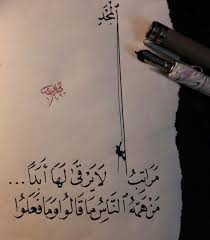 المَجْدِ
مَرَاتِبُ لَا يَرْقَىٰ لَهَا أَبَدًا ...
مَنْ هَمُّهُ ٱلنَّاسُ مَا قَالُوا وَمَا فَعَلُوا